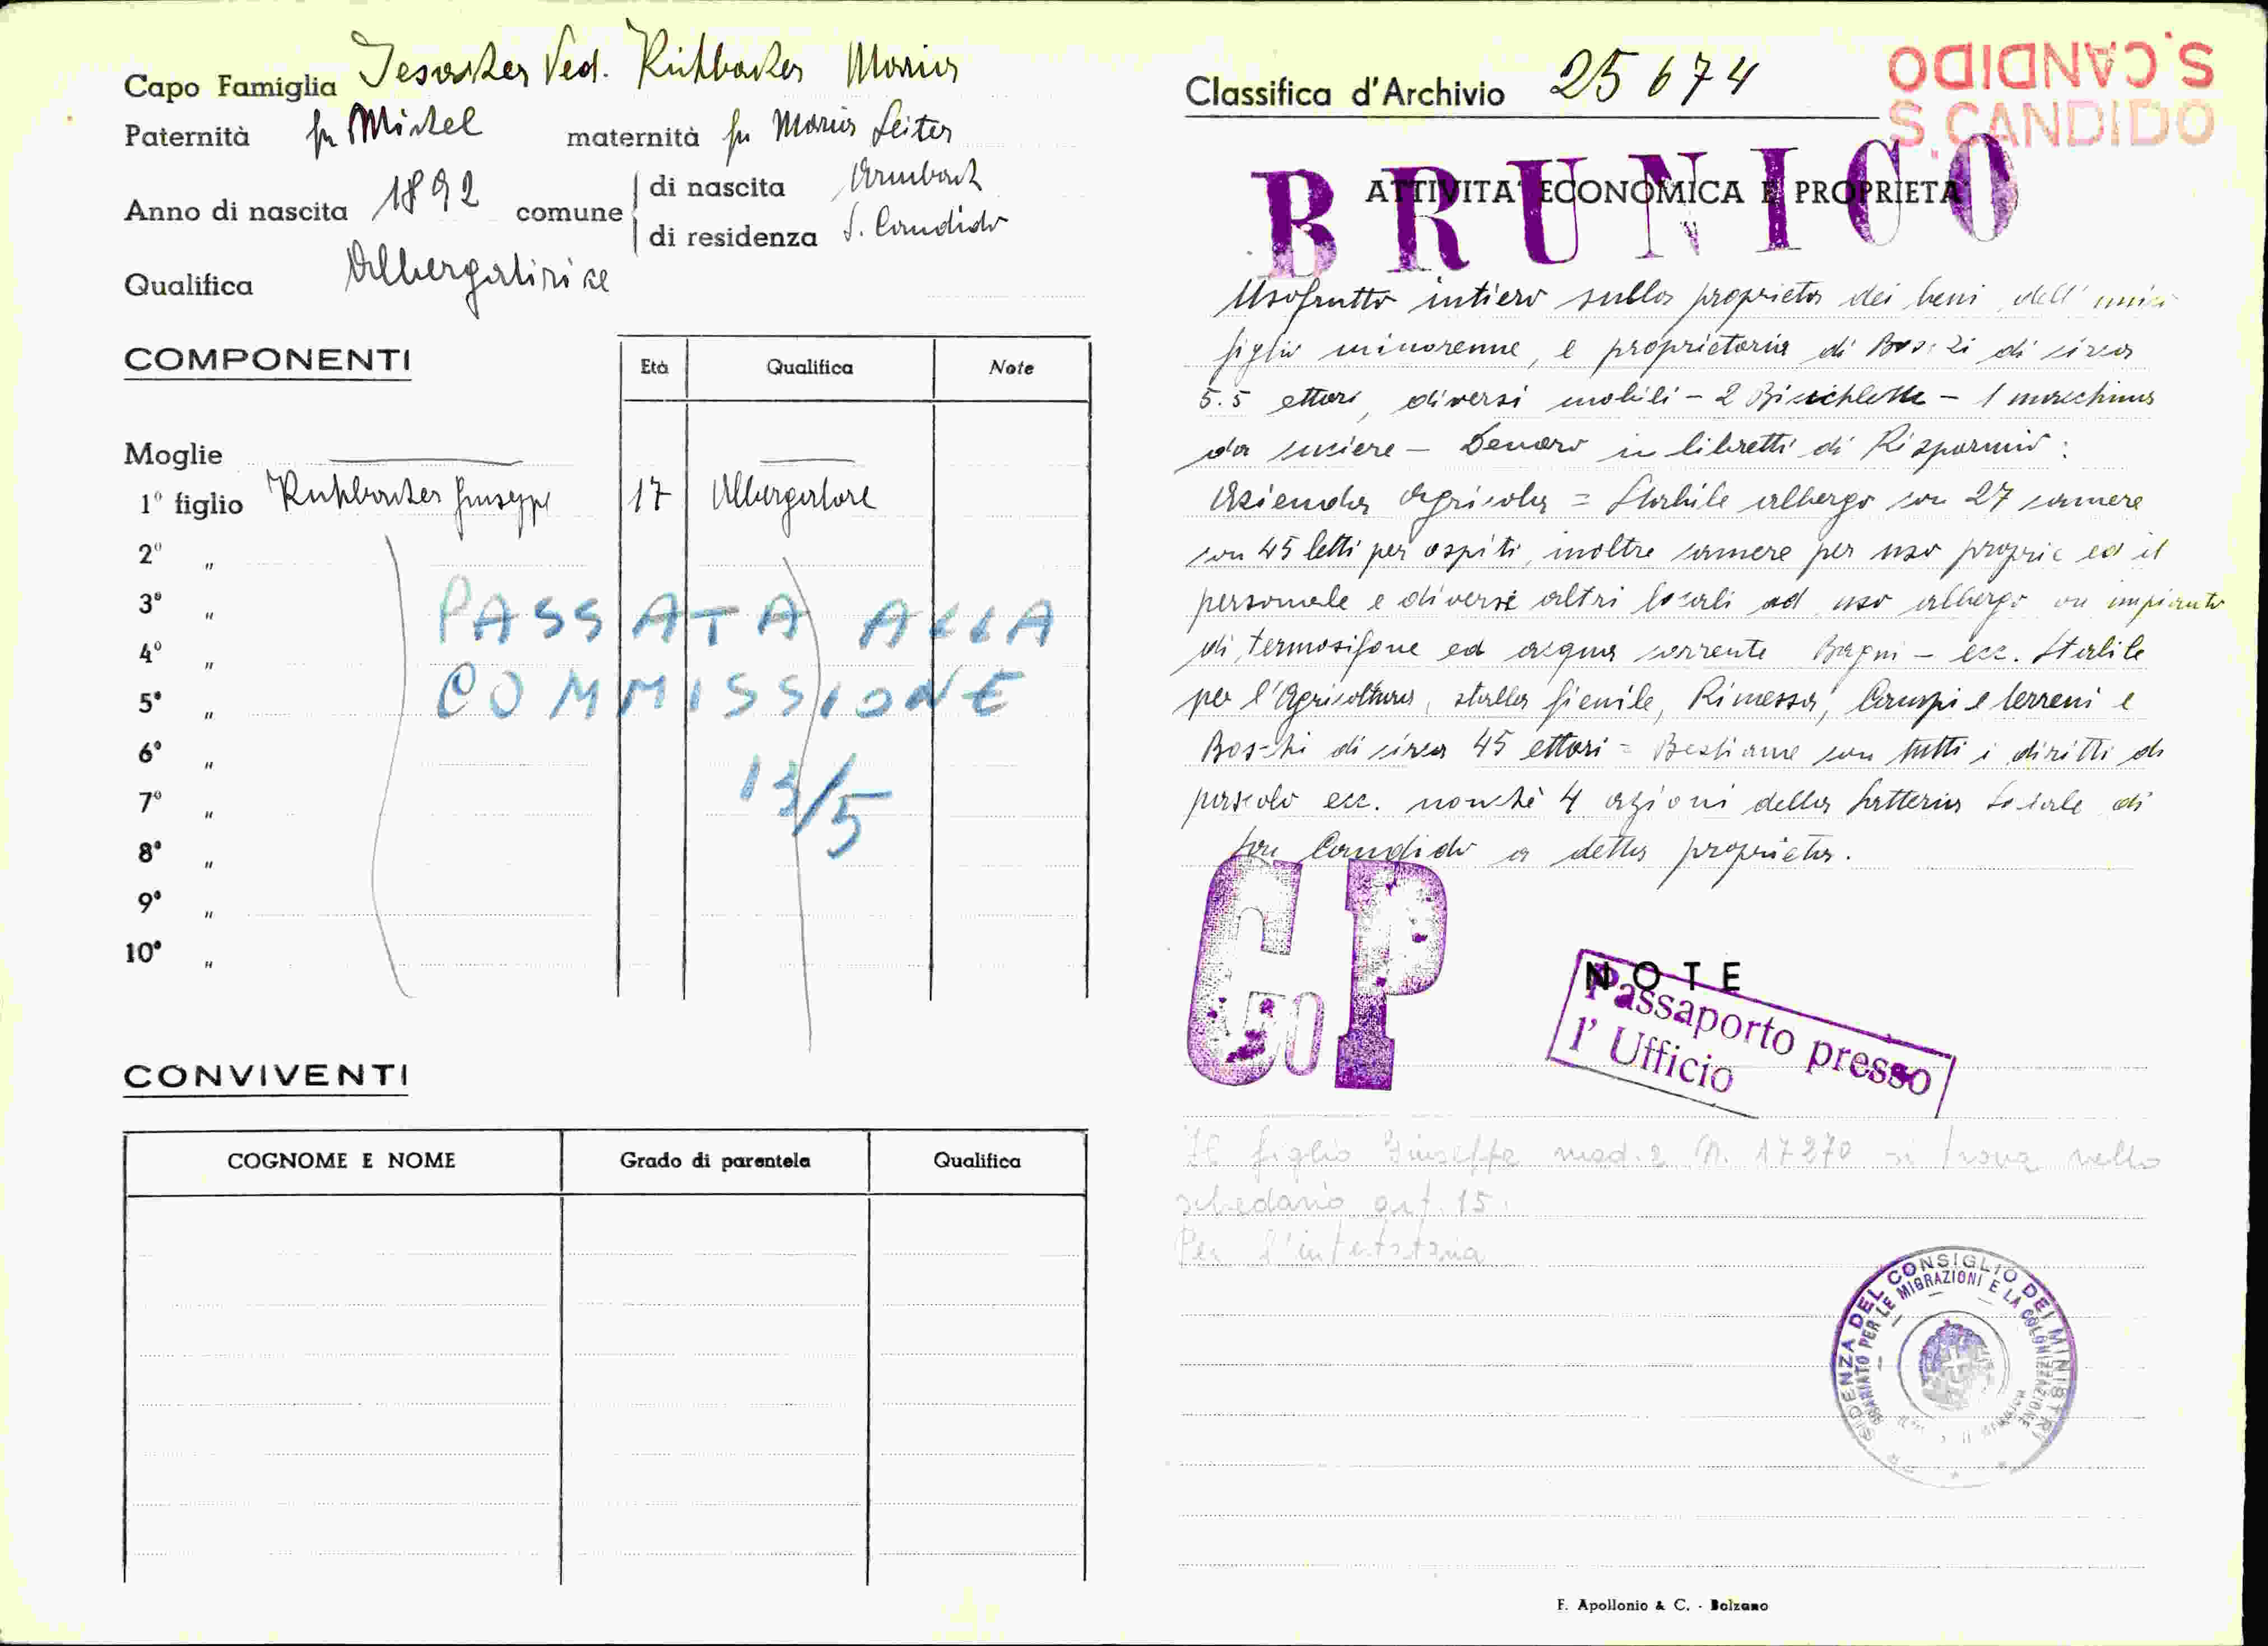 Capo Famiglia Jesacher Ved. Kühbacher Maria
Paternità fu Michel maternità fu Maria Leiter
Anno di nascita 1892 comune di nascita
di residenza S. Candido
Qualifica Albergatrice
COMPONENTI
Età Qualifica Note
Moglie
1º figlio Giuseppe 17 Albergatore
2º "
3º "
4º "
5º "
6º "
7º "
8º "
9º "
10º "
PASSATA ALLA
COMMISSIONE
13/5
CONVIVENTI
COGNOME E NOME Grado di parentela Qualifica
Classifica d'Archivio 25674
S. CANDIDO
S. CANDIDO
BRUNICO
ATTIVITA' ECONOMICA E PROPRIETA'
Usofrutto intiero sulla proprieta dei beni dell'
figlio minorenne, e proprietaria di Boschi di circa
5.5 ettari, diversi mobili - 2 Biciclette - 1 macchina
da cuciere - Denaro in libretti di Risparmio:
Azienda Agricola = Stabile albergo con 27 camere
con 45 letti per ospiti, inoltre camere per uso proprio ed il
personale e diversi altri locali ad uso albergo impianto
di termosifone ed acqua corrente Bagni - ecc. Stabile
per l'Agricoltura, stalla fienile, Rimessa, Campi e terreni e
Boschi di circa 45 ettari = Bestiame con tutti i diritti di
pascolo ecc. nonchè 4 azioni della Latteria Sociale di
San Candido a detta proprieta.
GP
NOTE
Passaporto presso
l'Ufficio
Il figlio Giuseppe mod. 2 N. 17270 si trova nello
schedario art. 15.
Per l'intestataria
PRESIDENZA DEL CONSIGLIO DEI MINISTRI
COMMISSARIATO PER LE MIGRAZIONI E LA COLONIZZAZIONE
F. Apollonio & C. - Bolzano